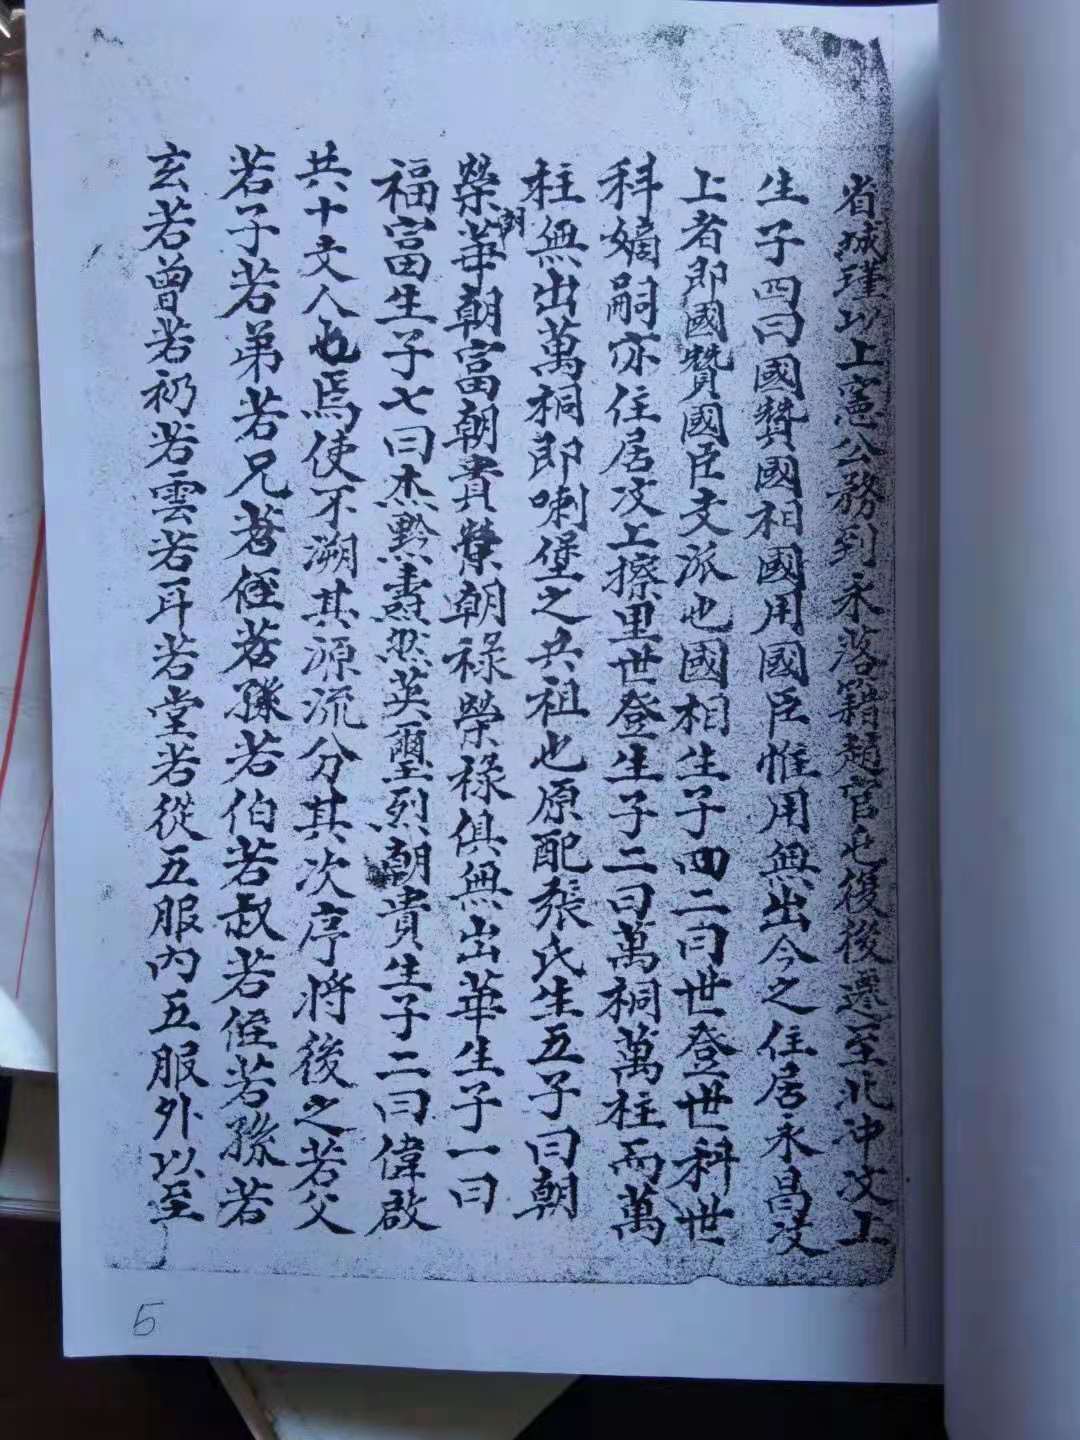 省城瑾以上憲公務到永落籍趙官屯復後遷至北冲汶上
生子四曰國贊國相國用國臣惟用無出今之住居永昌汶
上者即國贊國臣支派也國相生子四二曰世登世科世
科嫡嗣亦住居汶上擦里世登生子二曰萬桐萬柱而萬
柱無出萬桐即喇堡之共祖也原配張氏生五子曰朝
榮朝華朝富朝貴榮朝祿榮祿俱無出華生子一曰
福富生子七曰杰黔燾然英璽烈朝貴生子二曰偉啟
共十文人也焉使不溯其源流分其次序將後之若父
若子若弟若兄若侄若孫若伯若叔若侄若孫若
玄若曾若礽若雲若耳若堂若從五服內五服外以至
5